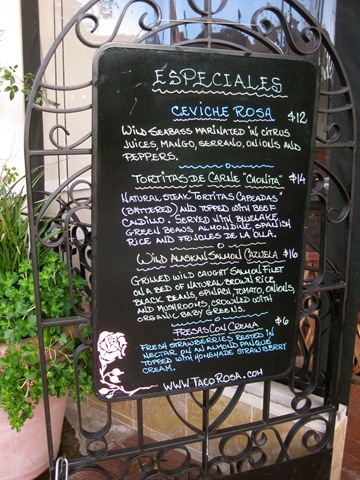 ESPECIALES
CEVICHE ROSA $12
WILD SEABASS MARINATED IN CITRUS
JUICES, MANGO, SERRANO, ONIONS AND
PEPPERS.
TORTITAS DE CARNE "CHONITA" $14
NATURAL STEAK TORTITAS CAPEADAS
(BATTERED) AND TOPPED WITH BEEF
CALDILLO. SERVED WITH BLUELAKE
GREEN BEANS ALMONDINE, SPANISH
RICE AND FRIJOLES DE LA OLLA.
WILD ALASKAN SALMON CAZUELA $16
GRILLED WILD CAUGHT SALMON FILET
ON A BED OF NATURAL BROWN RICE,
BLACK BEANS, SPINACH, TOMATO, ONIONS,
AND MUSHROOMS, CROWNED WITH
ORGANIC BABY GREENS.
FRESAS CON CREMA $6
FRESH STRAWBERRIES RESTED IN
NECTAR ON AN ALMOND PANQUE
TOPPED WITH HOMEMADE STRAWBERRY
CREAM.
WWW.TACOROSA.COM